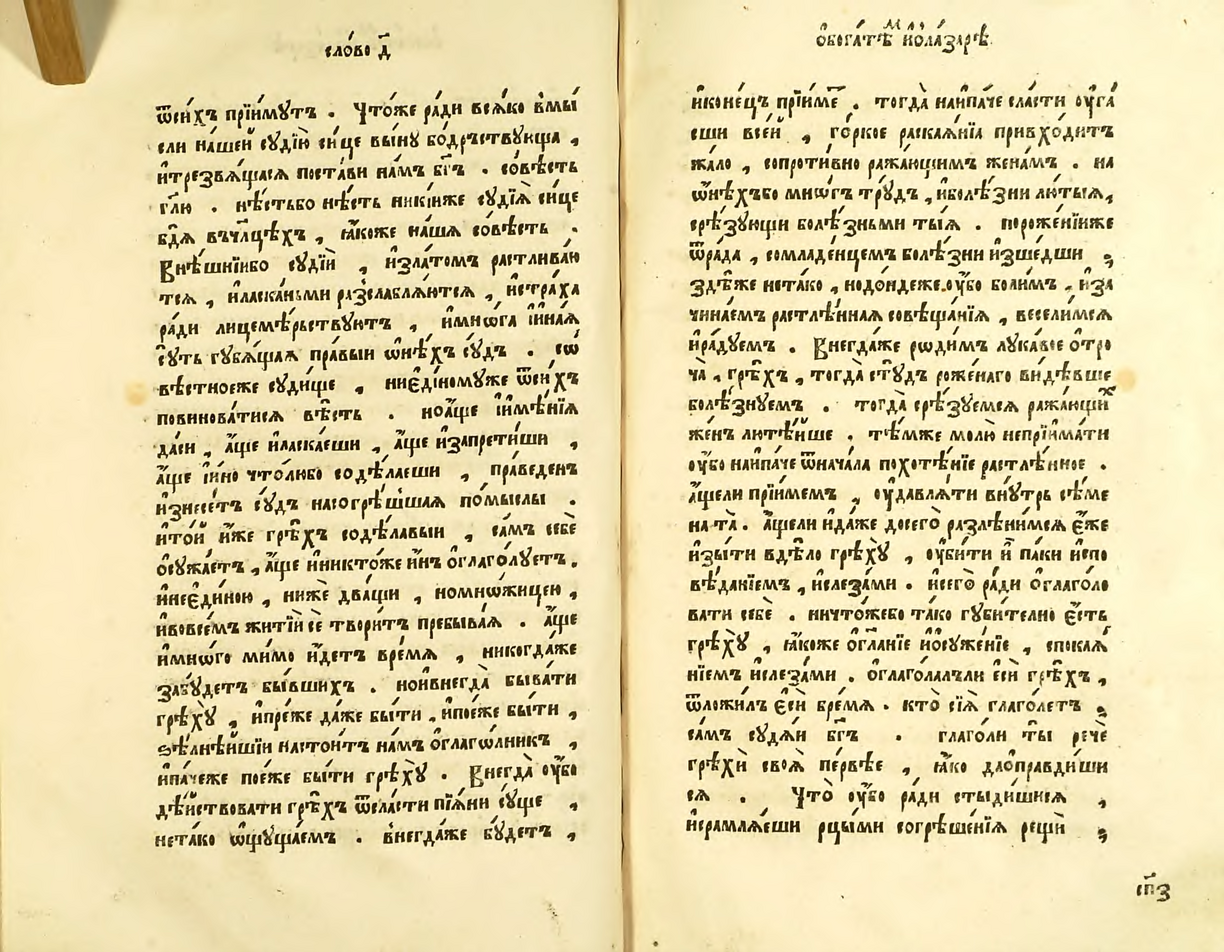 сло́во д҃
ѿси́хъ прїи́мутъ . Что́же ра́ди вся́ко в̾мы́
сли на́шей судїю̀ си́це вы́ну бо́дръствующа ,
и҆трезвя́щася поста́ви на́мъ бг҃ъ . со́вѣсть
гл҃ю . нѣ́стьбо нѣ́сть ники́иже судїя̀ си́це
бдя̀ въчл҃цѣхъ , ꙗ҆́коже на́ша со́вѣсть .
Внѣ́шнїибо судїи̑ , и҆зла́томъ растлива́ю
тся , и҆ласка́ньми разслабля́ются , и҆стра́ха
ра́ди лицемѣ́рьствуютъ , и҆мнѡ́га и҆́ная
су́ть губя́щая пра́выи ѡ҆нѣ́хъ су́дъ . сѡ́
вѣстноеже суди́ще , ниє҆ди́номуже ѿси́хъ
повинова́тися вѣ́сть . ноа҆́ще и҆мѣ́нїя
даси̑ , а҆́ще и҆ласка́еши , а҆́ще и҆запрети́ши ,
а҆́ще и҆́но что́любо содѣ́лаеши , пра́веденъ
и҆знесе́тъ су́дъ насогрѣ́шшая по́мыслы .
и҆то́й и҆́же грѣ́хъ содѣ́лавыи , са́мъ себѐ
ѻ҆сужа́етъ , а҆́ще и҆никто́же и҆́нъ ѻ҆глаго́луетъ .
и҆неє҆ди́ною , ни́же два́щи , номнѡ́жицею ,
и҆вовсе́мъ житїи̑ сѐ твори́тъ пребыва́я . а҆́ще
и҆мнѡ́го ми́мо и҆́детъ вре́мя , никогда́же
забу́детъ бы́вшихъ . нои҆внегда̀ быва́ти
грѣху̀ , и҆пре́же да́же бы́ти , и҆по́сже бы́ти ,
ѕѣлнѣ́йшїи настои́тъ на́мъ ѻ҆глаго́лникъ ,
и҆па́чеже по́сже бы́ти грѣху̀ . Внегда̀ ᲂу҆́бо
дѣ́йствовати грѣ́хъ ѿсла́сти пїя́ни су́ще ,
нета́ко ѡ҆щуща́емъ . внегда́же бу́детъ ,
ѻ҆бога́тѣ и҆ѻ҆ла́зарѣ
и҆коне́цъ прїи́ме . тогда̀ наипа́че сла́сти ᲂу҆га́
сши все́й , го́ркое раска́янїя привхо́дитъ
жа́ло , сопроти́вно ража́ющимъ жена́мъ . на
ѡ҆нѣ́хъбо мно́гъ тру́дъ , и҆болѣ́зни лю́тыя ,
срѣ́зующи болѣ́зньми ты́я . порожде́нїиже
ѿра́да , сомладе́нцемъ болѣ́зни и҆зше́дши ,
здѣ́же нета́ко , нодо́ндеже ᲂу҆́бо боли́мъ , и҆за
чина́емъ растлѣ́нная совѣща́нїя , весели́мся
и҆ра́дуемъ . Внегда́же роди́мъ лука́вое отро
ча̀ , грѣ́хъ , тогда̀ сту́дъ роже́наго ви́дѣвше
болѣ́знуемъ . тогда̀ срѣ́зуемся ража́ющихъ
же́нъ лютѣ́йше . тѣ́мже молю̀ неприїма́ти
ᲂу҆́бо наипа́че ѿнача́ла похотѣ́нїе растлѣ́нное .
а҆́щели прїи́мемъ , ᲂу҆давля́ти вну́трь сѣ́ме
на та̀ . а҆́щели и҆да́же досего̀ разлѣни́мся є҆́же
и҆зы́ти вдѣ́ло грѣху̀ , ᲂу҆би́ти и҆̀ па́ки и҆спо
вѣ́данїемъ , и҆слеза́ми . и҆сего̀ ра́ди ѻ҆глаго́ло
вати себѐ . ничто́жебо та́ко губи́телно є҆́сть
грѣху̀ , ꙗ҆́коже ѻ҆гла́нїе и҆ѻ҆сужде́нїе , спокая́
нїемъ и҆слеза́ми . ѻ҆глаго́лалъли є҆сѝ грѣ́хъ ,
ѿложи́лъ є҆сѝ бре́мя . кто̀ сїя̀ глаго́летъ ,
са́мъ судя́и бг҃ъ . глаго́ли ты̀ речѐ
грѣхѝ своя̀ пе́рвѣе , ꙗ҆́ко даѻ҆правди́ши
ся . Что̀ ᲂу҆́бо ра́ди стыди́шися ,
и҆срамля́еши рцы́ми согрѣше́нїя рещѝ ,
сп҃з